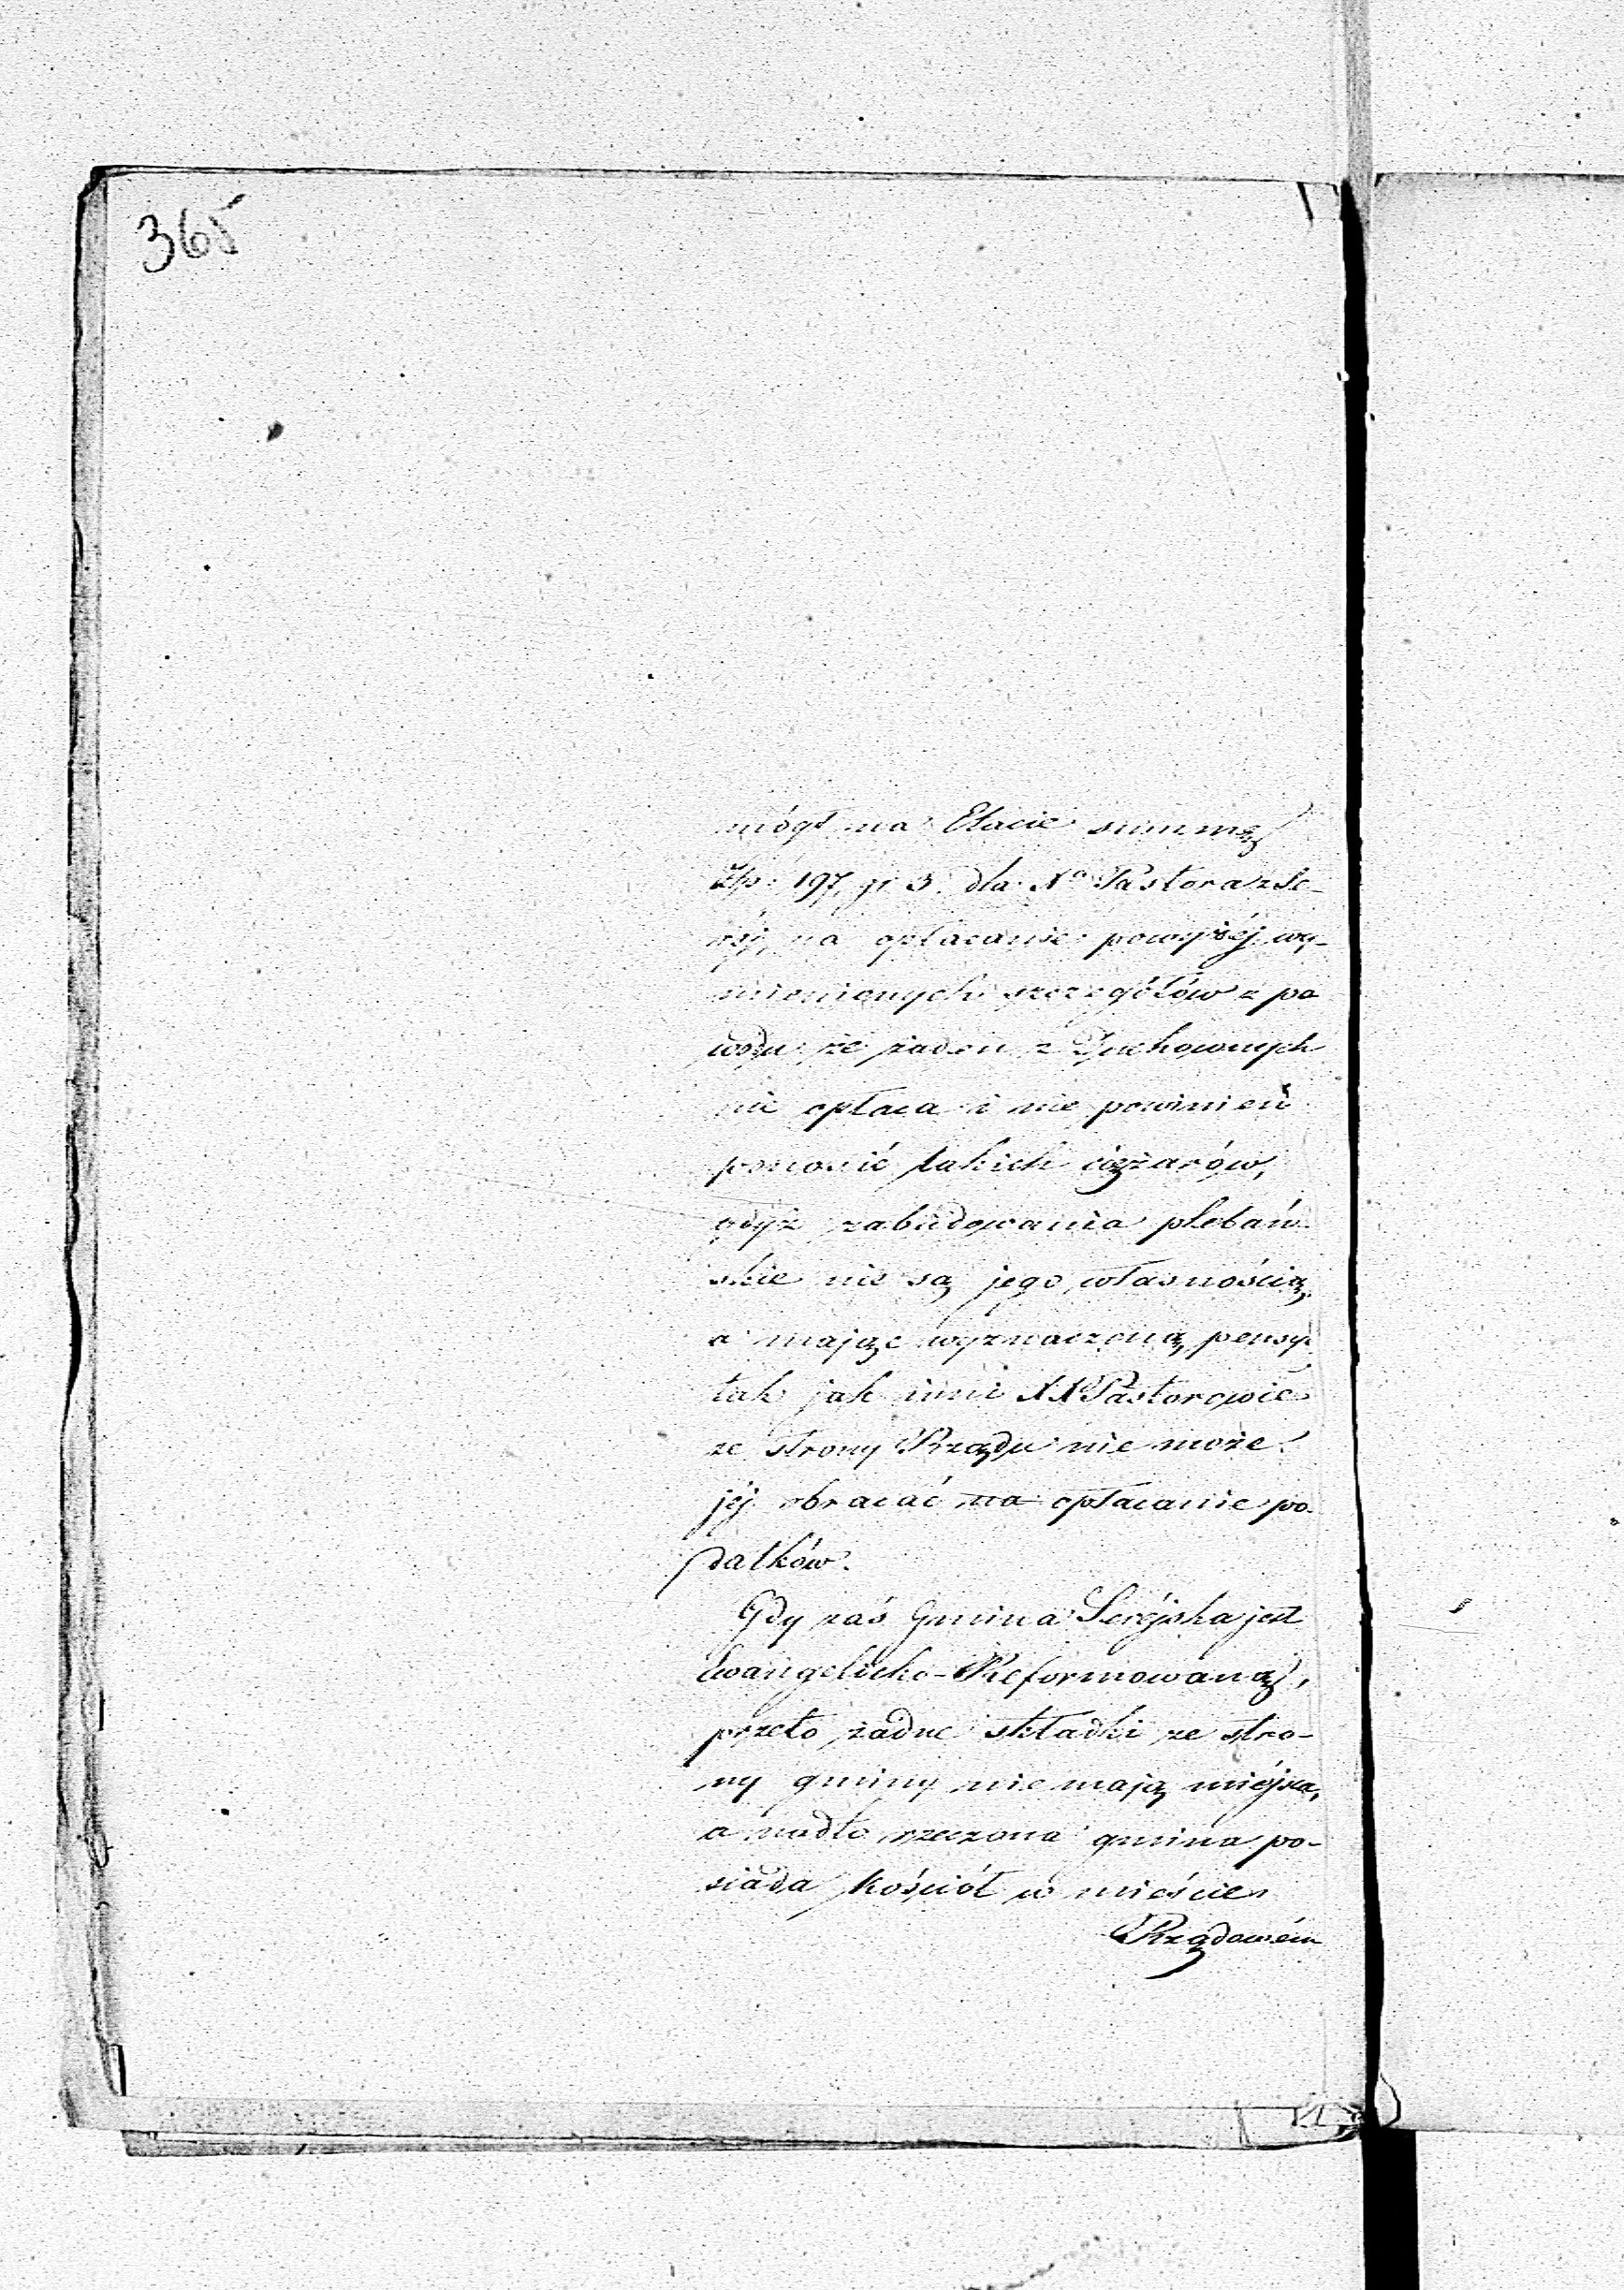 365
mógł na Etacie summę
Złp: 197, gr 3. dla Xa Pastora z Se-
réj, na opłacanie powyżéj wy-
mienionych szczegółów z po
wodu że żaden z Duchownych
nie opłaca i nie powinien
ponosić takich ciężarów,
gdyż zabudowania plebań-
skie nie są jego własnością,
a mając wyznaczoną pensyę
tak jak inni XX Pastorowie
ze strony Rządu nie może
jéj obracać na opłacanie po-
datków.
Gdy zaś Gmina Seréjska jest
Ewangelicko-Reformowaną,
przeto żadne składki ze stro-
ny gminy nie mają miéjsca,
a nadto rzeczona gmina po-
siada kościół w mieście
Rządowém